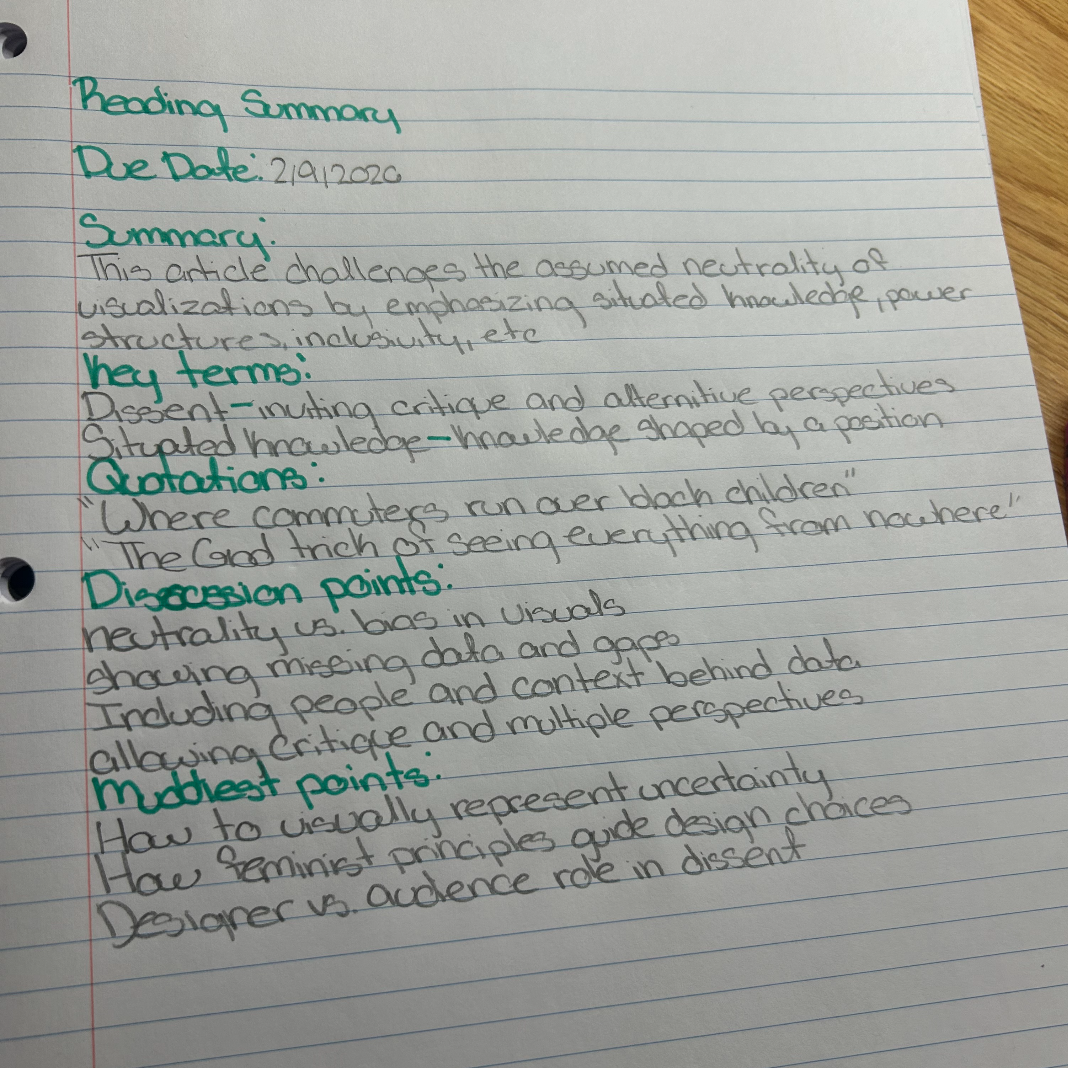 Reading Summary
Due Date: 2/9/2020
Summary:
This article challenges the assumed neutrality of
visualizations by emphasizing situated knowledge, power
structures, inclusivity, etc
key terms:
Dissent-inviting critique and alternitive perspectives
Situated knowledge-knowledge shaped by a position
Quotations:
"Where commuters run over black children"
"The God trick of seeing everything from nowhere"
Disscession points:
neutrality vs. bias in visuals
showing missing data and gaps
Including people and context behind data
allowing critique and multiple perspectives
Muddiest points:
How to visually represent uncertainty
How feminist principles guide design choices
Designer vs. audience role in dissent